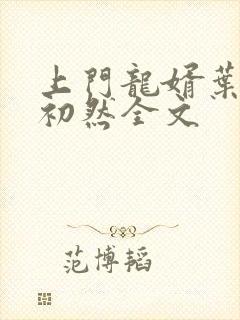 上門龍婿葉
初然全文
范博韬